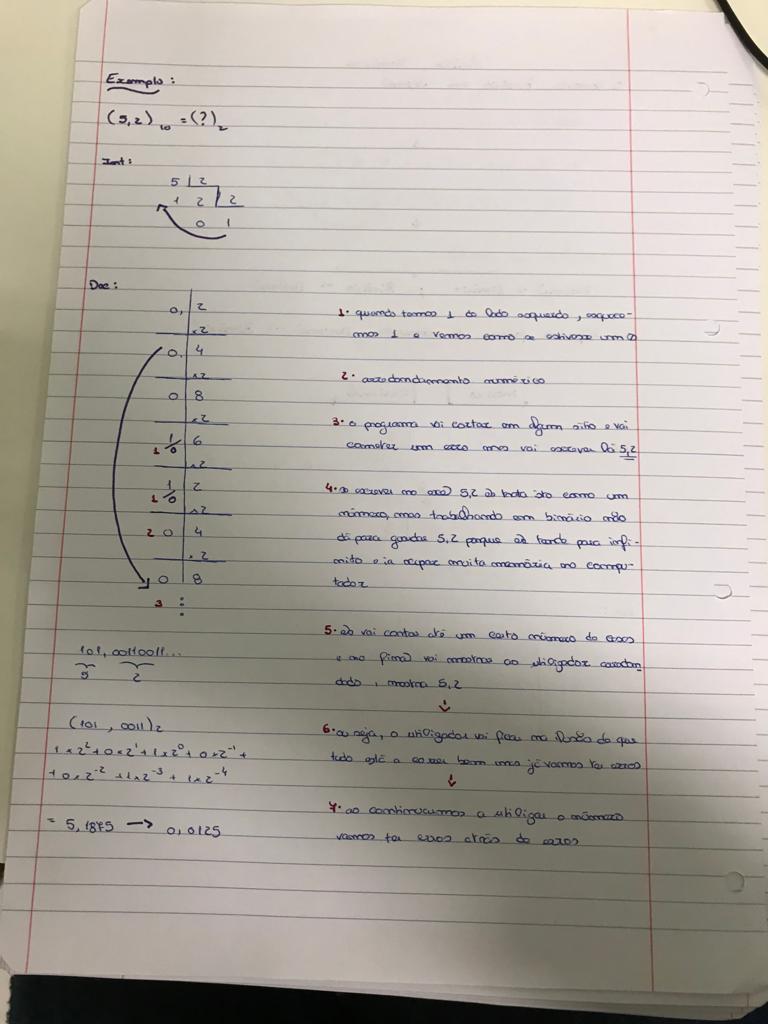 Exemplo:
(5,2)₁₀ = (?)₂
Int:
5 | 2
1 2 | 2
0 1
Dec:
0, | 2
×2
0, | 4
×2
0 | 8
×2
1 1/0 | 6
×2
1 1/0 | 2
×2
2 0 | 4
×2
0 | 8
3 :
101, 00110011...
5 2
(101, 0011)₂
1×2² + 0×2¹ + 1×2⁰ + 0×2⁻¹ +
+ 0×2⁻² + 1×2⁻³ + 1×2⁻⁴
= 5,1875 → 0,0125
1. quando temos 1 do lado esquerdo, esquece-
mos 1 e vemos como se estivesse um 0
2. arredondamento numérico
3. o programa vai cortar em algum sitio e vai
cometer um erro mas vai escrever lá 5,2
4. ao escrever no 5,2 ele trata isto como um
número, mas trabalhando em binário não
dá para guardar 5,2 porque ele tende para infi-
nito e ia ocupar muita memória no compu-
tador
5. ele vai contar até um certo número de casas
e no final vai mostrar ao utilizador arredon
dado, mostra 5,2
↓
6. ou seja, o utilizador vai ficar na ilusão de que
tudo está a correr bem mas já vamos ter erros
↓
7. ao continuarmos a utilizar o número
vamos ter erros atrás de erros